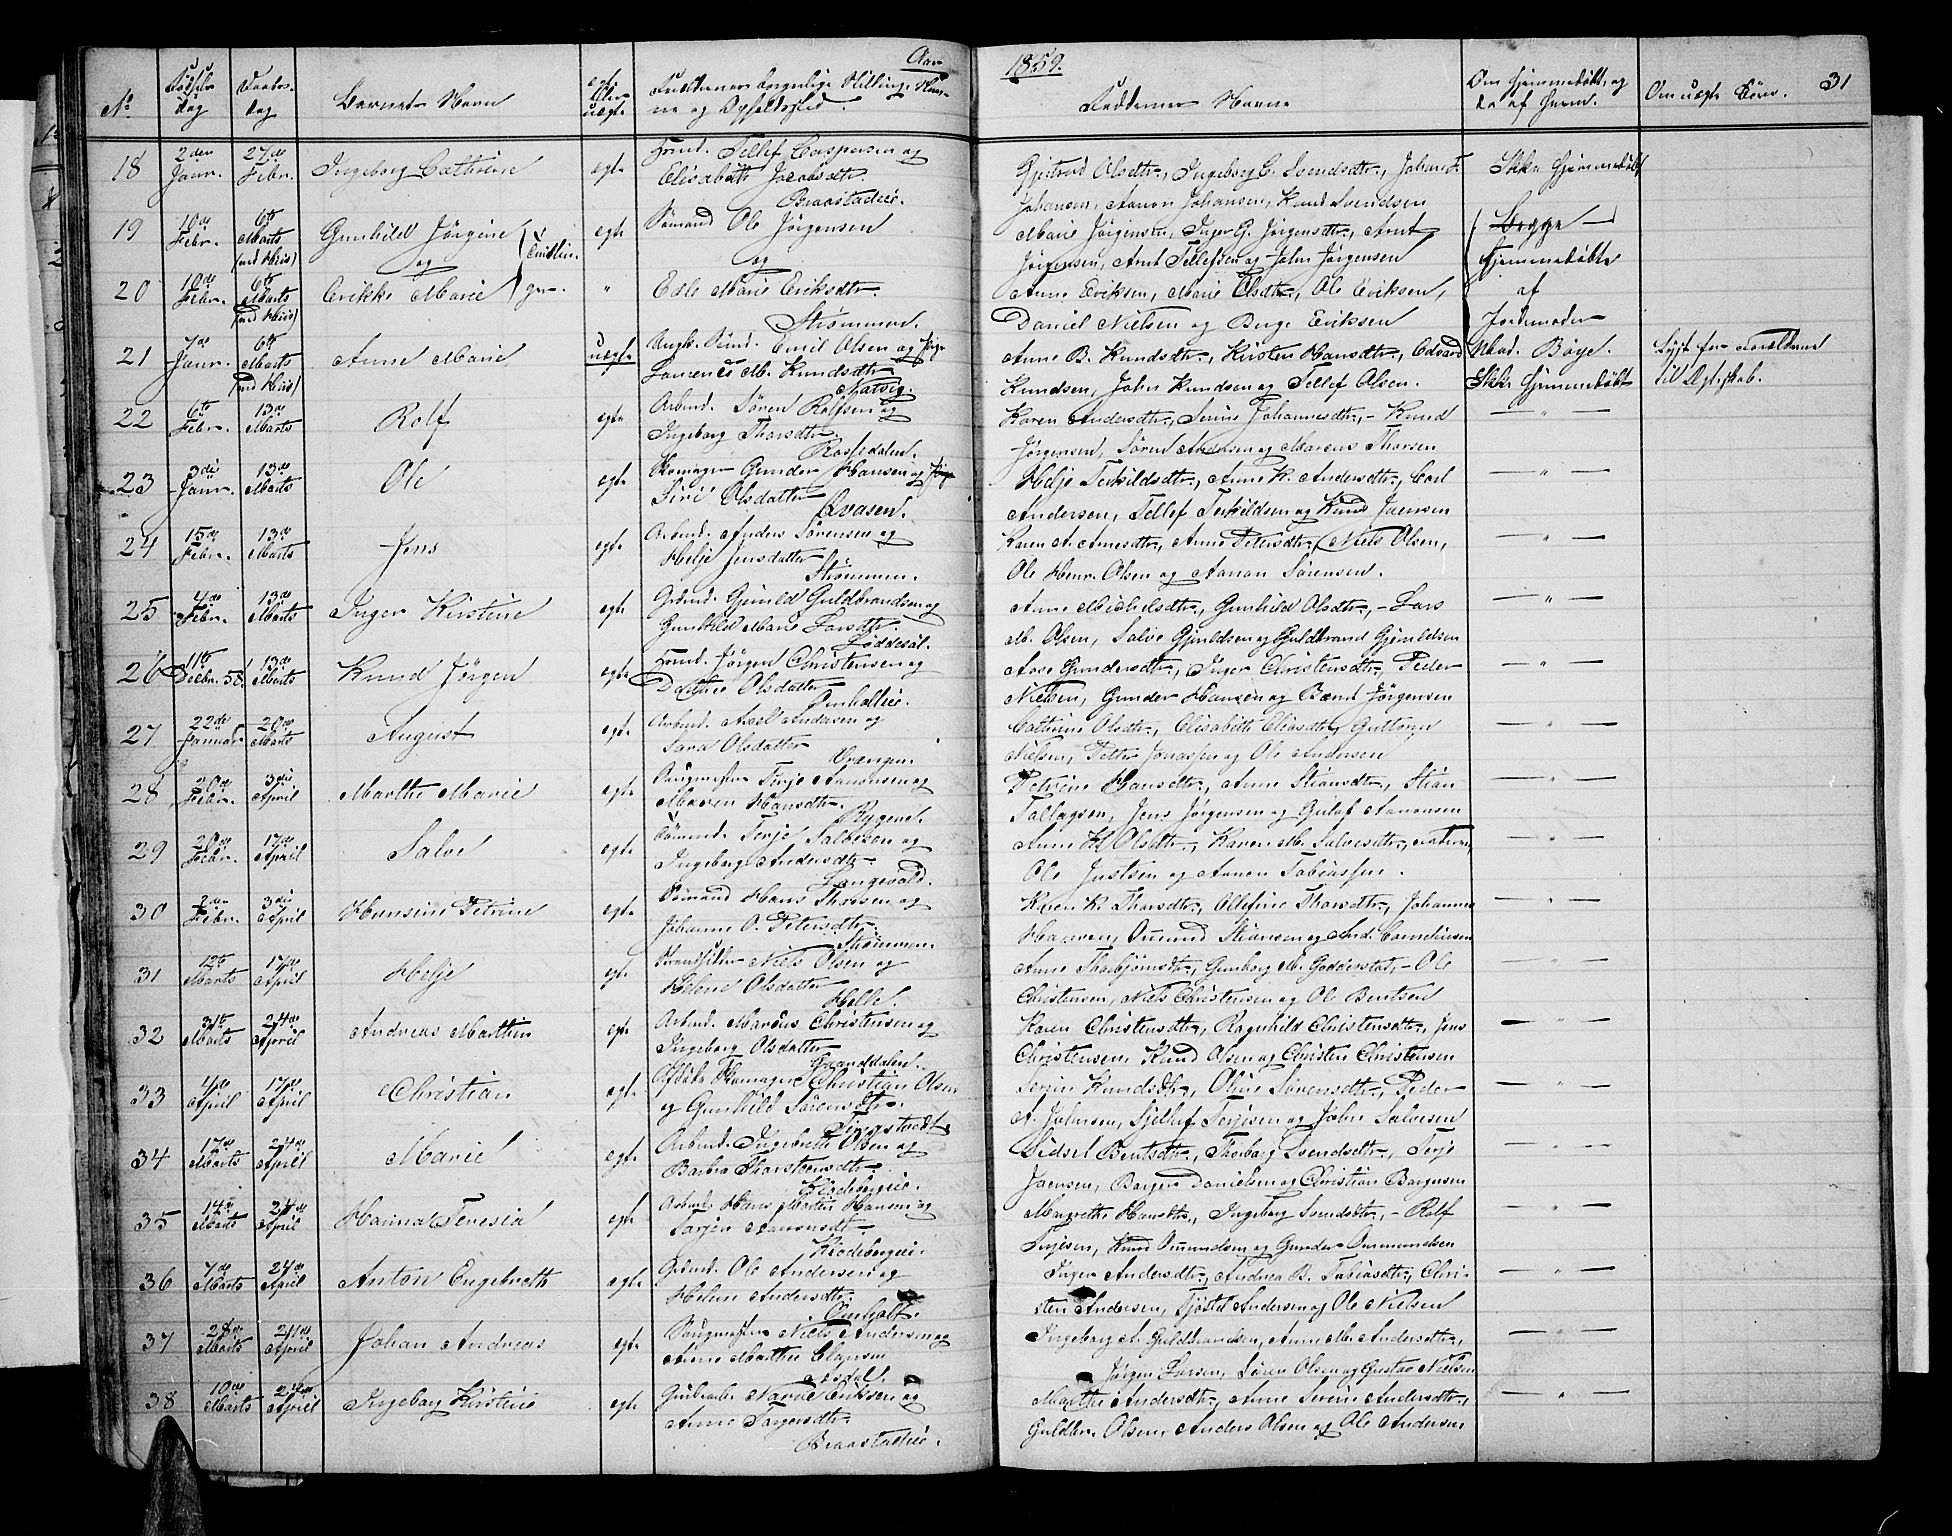 Aar 1859. 31
No Fødsels Dag Daabs Dag Barnets Navn egte eller uegte Forældrenes borgerlige Stilling, Navne og Opholdssted. Faddernes Navne Om hjemmedøbt, og da af hvem. Om uegte Børn.
18 2den Janr. 27de Febr. Ingeborg Cathrine egte Tellef Caspersen og
Elisabeth Jacobsdtr. Braastadeie.
Gjertrud Olsdtr., Ingeborg C. Svendsdtr., Johan F.
Johansen, Aanon Johansen, Knud Svendsen
Ikke hjemmedøbt
19 10de Febr. 6te Marts (ved Hiis) Gunhild Jørgine og Tvillin- egte Sømand Ole Jørgensen og
Marie Jørgensen, Inger G. Jørgensdtr., Arnt
Jørgensen, Arnt Tellefsen og John Jørgensen
Begge hjemmedøbte
20 10de Febr. 6te Marts (ved Hiis) Erikke Marie ger. " Edle Marie Eriksdtr. Strømmen.
Anne Eriksen, Marie Olsdtr., Ole Eriksen,
Daniel Nielsen og Berge Eriksen
af Jordemoder
Mad. Bøye.
21 7de Janr. 6te Marts (ved Hiis) Anne Marie uegte Ungk. Sømd. Emil Olsen og Pige
Laurence M. Knudsdtr. Natvig.
Anne B. Knudsdtr., Kirsten Hansdtr., Edvard
Knudsen, John Knudsen og Tellef Olsen.
Ikke hjemmedøbt
Lyst for Forældrene
til Egteskab.
22 6te Febr. 13de Marts Rolf egte Arbmd. Søren Rolfsen og
Ingeborg Thorsdtr. Rossedalen.
Karen Andersdtr., Serine Johannesdtr., Knud
Jørgensen, Søren Andersen og Marcus Thorsen
— " —
23 3die Janr. 13de Marts Ole egte Skomager Gunder Hansen og
Siri Olsdatter Qvasen.
Helje Terkildsdtr., Anne K. Andersdtr., Carl
Andersen, Tellef Terkildsen og Knud Jensen
— " —
24 15de Febr. 13de Marts Jens egte Arbmd. Anders Sørensen og
Helje Jensdatter Strømmen.
Karen A. Arnesdtr., Anne Petersdtr., Niels Olsen,
Ole Henr. Olsen og Aanon Sørensen.
— " —
25 4de Febr. 13de Marts Inger Kirstine egte Grbmd. Gjeruld Guldbrandsen og
Gunhild Marie Larsdtr. Løddesøl.
Anne Michelsdtr., Gunhild Olsdtr., Lars
M. Olsen, Salve Gjeruldsen og Guldbrand Gjeruldsen
— " —
26 11te Decbr. 58. 13de Marts Knud Jørgen egte Jørgen Christensen og
Dorthe Olsdatter
Aase Gundersdtr., Inger Christensdtr., Peder
Nielsen, Gunder Hansen og Bærnt Jørgensen
— " —
27 22de Januar 20de Marts August egte Arbmd. Axel Andersen og
Sara Olsdatter Vrængen.
Cathrine Olsdtr., Elisabeth Eliasdtr., Guttorm
Nielsen, Petter Jonassen og Ole Andersen
— " —
28 20de Febr. 3die April Marthe Marie egte Saugmester Terje Aanonsen og
Maren Hansdtr. Rygene.
Petrine Hansdtr., Anne Stiansdtr., Stian
Tallagsen, Jens Jørgensen og Gulof Aanonsen
— " —
29 20de Febr. 17de April Salve egte Sømand Terje Salvesen og
Ingeborg Andersdtr. Langevold.
Anne H. Olsdtr., Karen M. Salvesdtr.,
Ole Justsen og Aanon Tobiassen.
— " —
30 2den Febr. 3die April Hansine Petrine egte Sømand Hans Thorsen og
Johanne O. Petersdtr. Strømmen.
Karen K. Thorsdtr., Ollefine Thorsdtr., Johannes
Hansen, Omund Stiansen og And. Cornelius
— " —
31 12te Marts 17de April Helje egte Strandsidder Niels Olsen og
Helene Olsdatter Helle.
Anne Thorbjørnsdtr., Gunborg M. Godderstad, Ole
Christensen, Niels Christensen og Ole Bentsen
— " —
32 31te Marts 24de April Andreas Marthin egte Arbmd. Marcus Christensen og
Ingeborg Olsdatter
Karen Christensdtr., Ragnhild Christensdtr., Jens
Christensen, Knud Olsen og Christen Christensen
— " —
33 4de April 17de April Christian egte Skomager Christian Olsen
og Gunhild Sørensdtr. Tingstvedt.
Serine Knudsdtr., Oline Sørensdtr., Peder
A. Johnsen, Sjellef Terjesen og John Salvesen
— " —
34 17de Marts 24de April Marie egte Arbmd. Ingebreth Olsen og
Barbra Thorsteensdtr. Klodebergeie.
Sidsel Bentsdtr., Thorborg Svendsdtr., Terje
Jensen, Børge Danielsen og Christian Børgesen
— " —
35 14de Marts 24de April Hanna Teresia egte Arbmd. Hans Morten Hansen og
Torjer Aanonsdtr. Klodebergeie.
Margrethe Hansdtr., Ingeborg Svendsdtr., Rolf
Terjesen, Knud Omundsen og Gunder Ommundsen
— " —
36 7de Marts 24de April Anton Engebreth egte Grbmd. Ole Andersen og
Helene Andersdtr.
Inger Andersdtr., Andrea B. Tobiasdtr., Chri-
sten Andersen, Tjøstel Andersen og Ole Nielsen
— " —
37 28de Marts 24de April Johan Andreas egte Saugmester Niels Andersen og
Anne Marthea Clausen Asdal.
Ingeborg A. Guldbrandsen, Anne M. Andersdtr.,
Jørgen Larsen, Søren Olsen og Gustav Nielsen
— " —
38 10de Marts 24de April Ingeborg Kirstine egte Grubearb. Narve Eriksen og
Anne Torgersdtr. Braastadeie.
Marthe Andersdtr., Anne Serine Andersdtr.,
Guldbr. Olsen, Anders Olsen og Ole Andersen
— " —